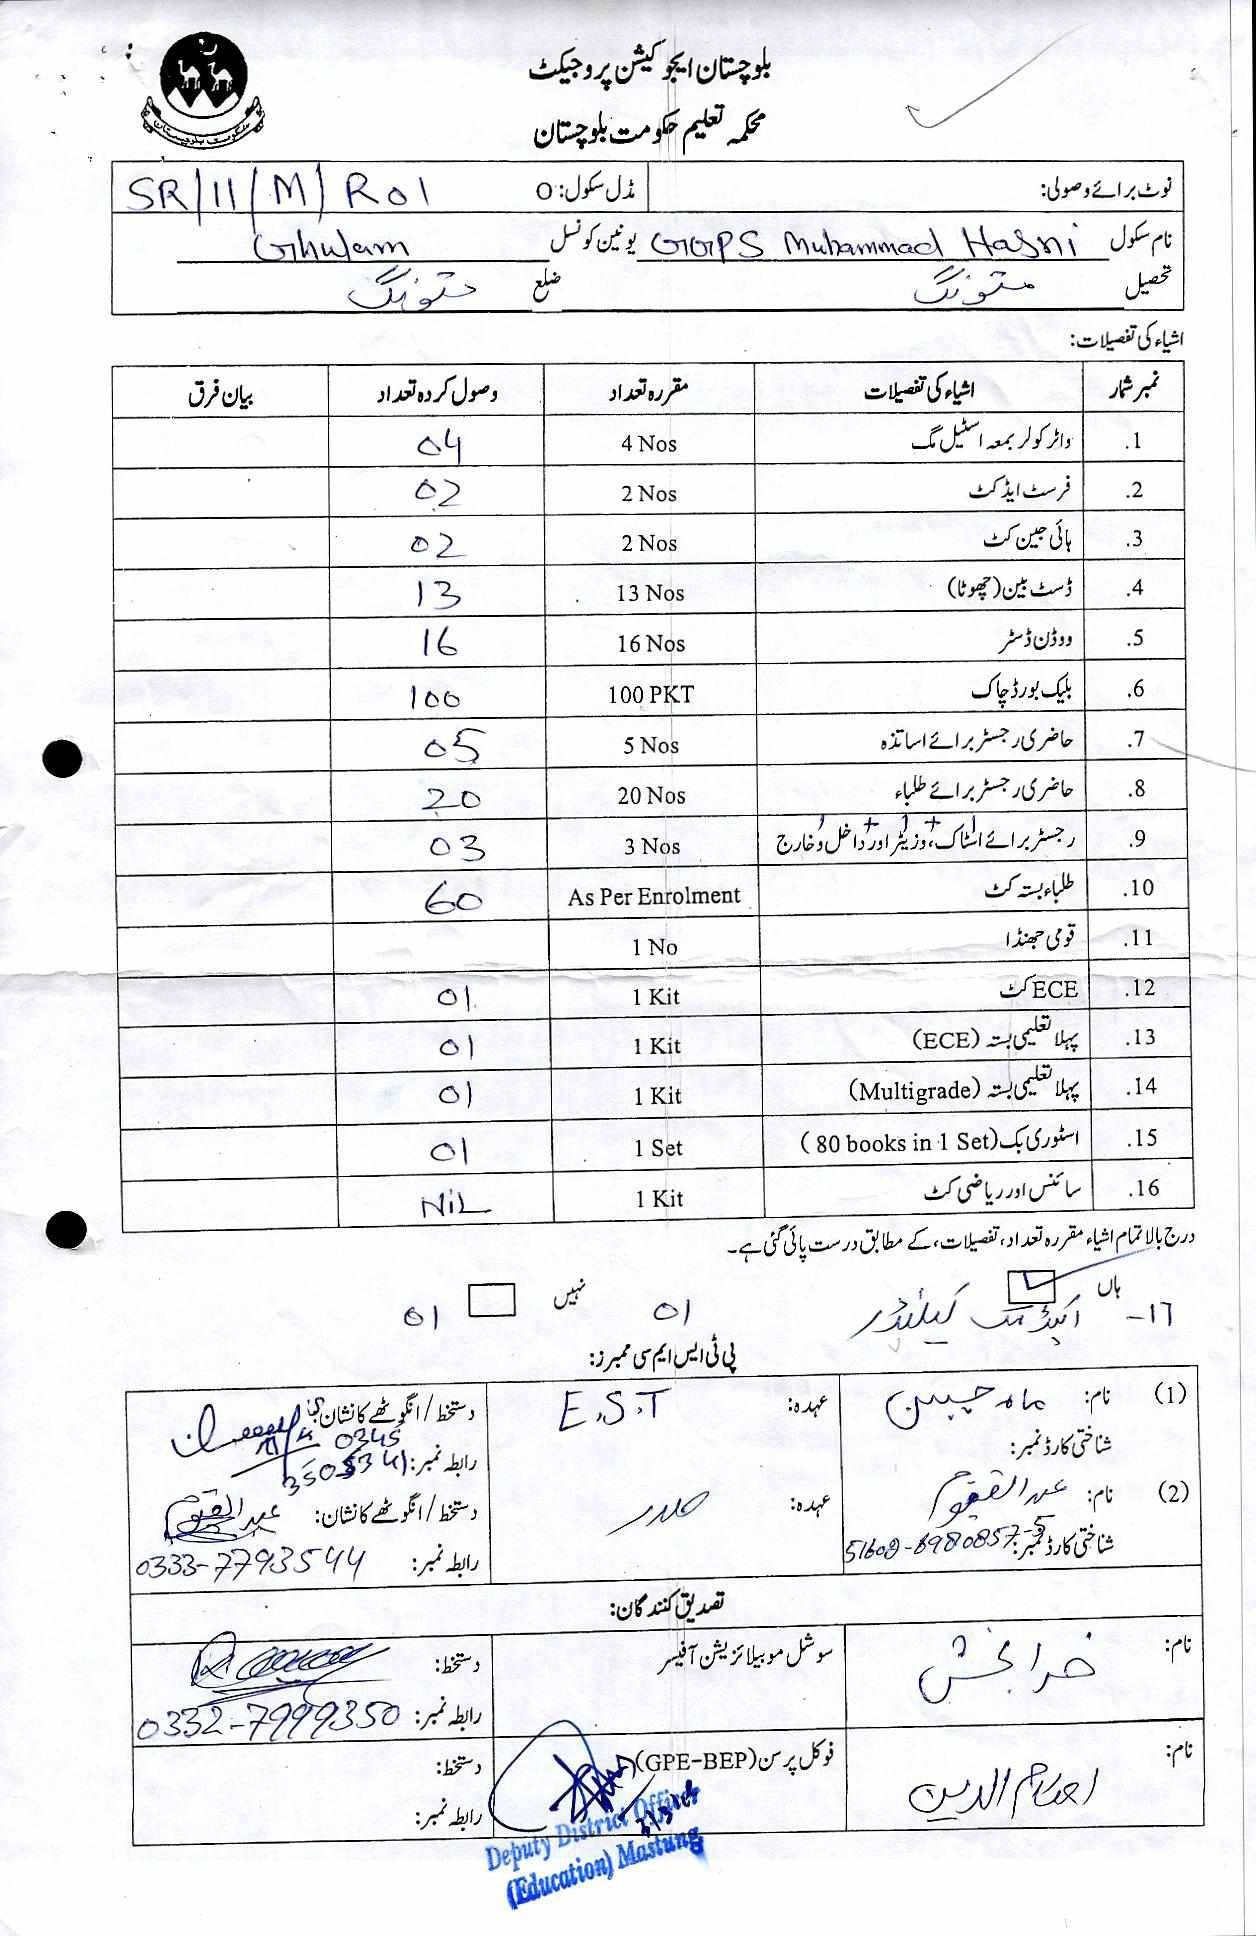 بلوچستان ایجوکیشن پروجیکٹ
محکمہ تعلیم حکومت بلوچستان
نوٹ برائے وصولی: مڈل سکول: O SR/11/M/R01
نام سکول GGPS Muhammad Hasni یونین کونسل Ghulam
تحصیل مستونگ ضلع مستونگ
اشیاء کی تفصیلات:
نمبر شمار اشیاء کی تفصیلات مقررہ تعداد وصول کردہ تعداد بیان فرق
1. واٹر کولر بمعہ اسٹیل مگ 4 Nos 04
2. فرسٹ ایڈ کٹ 2 Nos 02
3. ہائی جین کٹ 2 Nos 02
4. ڈسٹ بین (چھوٹا) 13 Nos 13
5. ووڈن ڈسٹر 16 Nos 16
6. بلیک بورڈ چاک 100 PKT 100
7. حاضری رجسٹر برائے اساتذہ 5 Nos 05
8. حاضری رجسٹر برائے طلباء 20 Nos 20
9. رجسٹر برائے اسٹاک، وزیٹر اور داخل و خارج 3 Nos 03
10. طلباء بستہ کٹ As Per Enrolment 60
11. قومی جھنڈا 1 No
12. ECE کٹ 1 Kit 01
13. پہلا تعلیمی بستہ (ECE) 1 Kit 01
14. پہلا تعلیمی بستہ (Multigrade) 1 Kit 01
15. اسٹوری بک (80 books in 1 Set) 1 Set 01
16. سائنس اور ریاضی کٹ 1 Kit NiL
درج بالا تمام اشیاء مقررہ تعداد، تفصیلات، کے مطابق درست پائی گئی ہے۔
ہاں نہیں
۱۷- اکیڈمک کیلنڈر 01 01
پی ٹی ایس ایم سی ممبرز:
(1) نام: ماہ جبین عہدہ: E.S.T دستخط / انگوٹھے کا نشان:
شناختی کارڈ نمبر: رابطہ نمبر: 0345
(2) نام: عبدالقیوم عہدہ: صدر دستخط / انگوٹھے کا نشان: عبدالقیوم
شناختی کارڈ نمبر: رابطہ نمبر: 0333-7793544
تصدیق کنندگان:
نام: خدا بخش سوشل موبیلائزیشن آفیسر دستخط:
رابطہ نمبر: 0332-7999350
نام: فوکل پرسن (GPE-BEP) دستخط:
رابطہ نمبر:
Deputy District Officer
(Education) Mastung